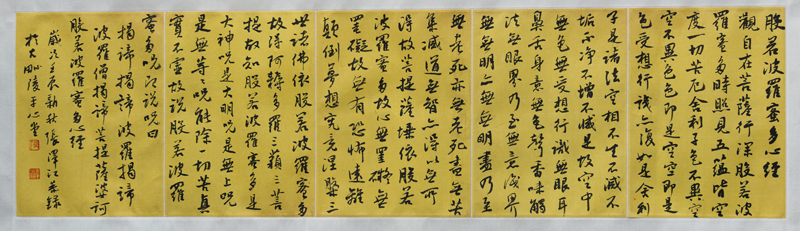 般若波羅蜜多心經
觀自在菩薩行深般若波
羅蜜多時照見五蘊皆空
度一切苦厄舍利子色不異空
空不異色色即是空空即是
色受想行識亦復如是舍利
子是諸法空相不生不滅不
垢不淨不增不減是故空中
無色無受想行識無眼耳
鼻舌身意無色聲香味觸
法無眼界乃至無意識界
無無明亦無無明盡乃至
無老死亦無老死盡無苦
集滅道無智亦得以無所
得故菩提薩埵依般若
波羅蜜多故心無罣礙無
罣礙故無有恐怖遠離
顛倒夢想究竟涅槃三
世諸佛依般若波羅蜜多
故得阿耨多羅三藐三菩
提故知般若波羅蜜多是
大神呪是大明呪是無上呪
是無等等呪能除一切苦真
實不虛故說般若波羅
蜜多呪即說呪曰
揭諦揭諦波羅揭諦
波羅僧揭諦菩提薩婆訶
般若波羅蜜多心經
歲次壬辰新秋張澤江恭錄
於